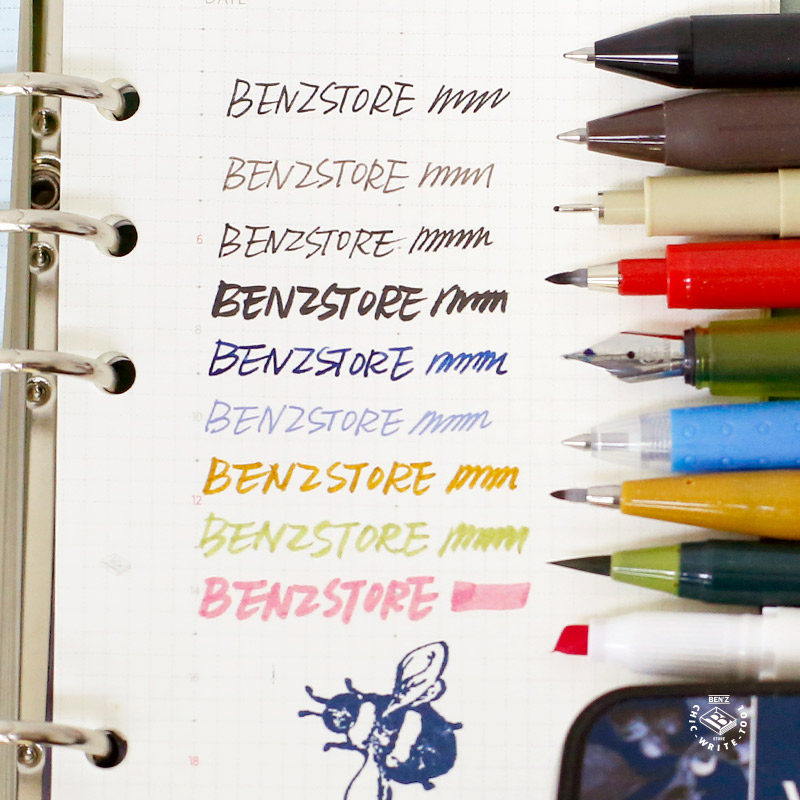 DATE
BENZSTORE
BENZSTORE
6
BENZSTORE
BENZSTORE
8
BENZSTORE
10
BENZSTORE
BENZSTORE
12
BENZSTORE
14
BENZSTORE
16
BEN'Z
STORE
CHIC-WRITE-TOO
18